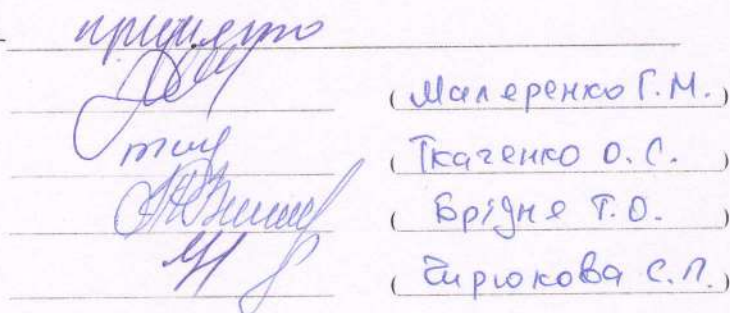 прийнято
(Маляренко Г.М.)
(Ткаченко О.С.)
(Брідня Т.О.)
(Бирюкова С.П.)